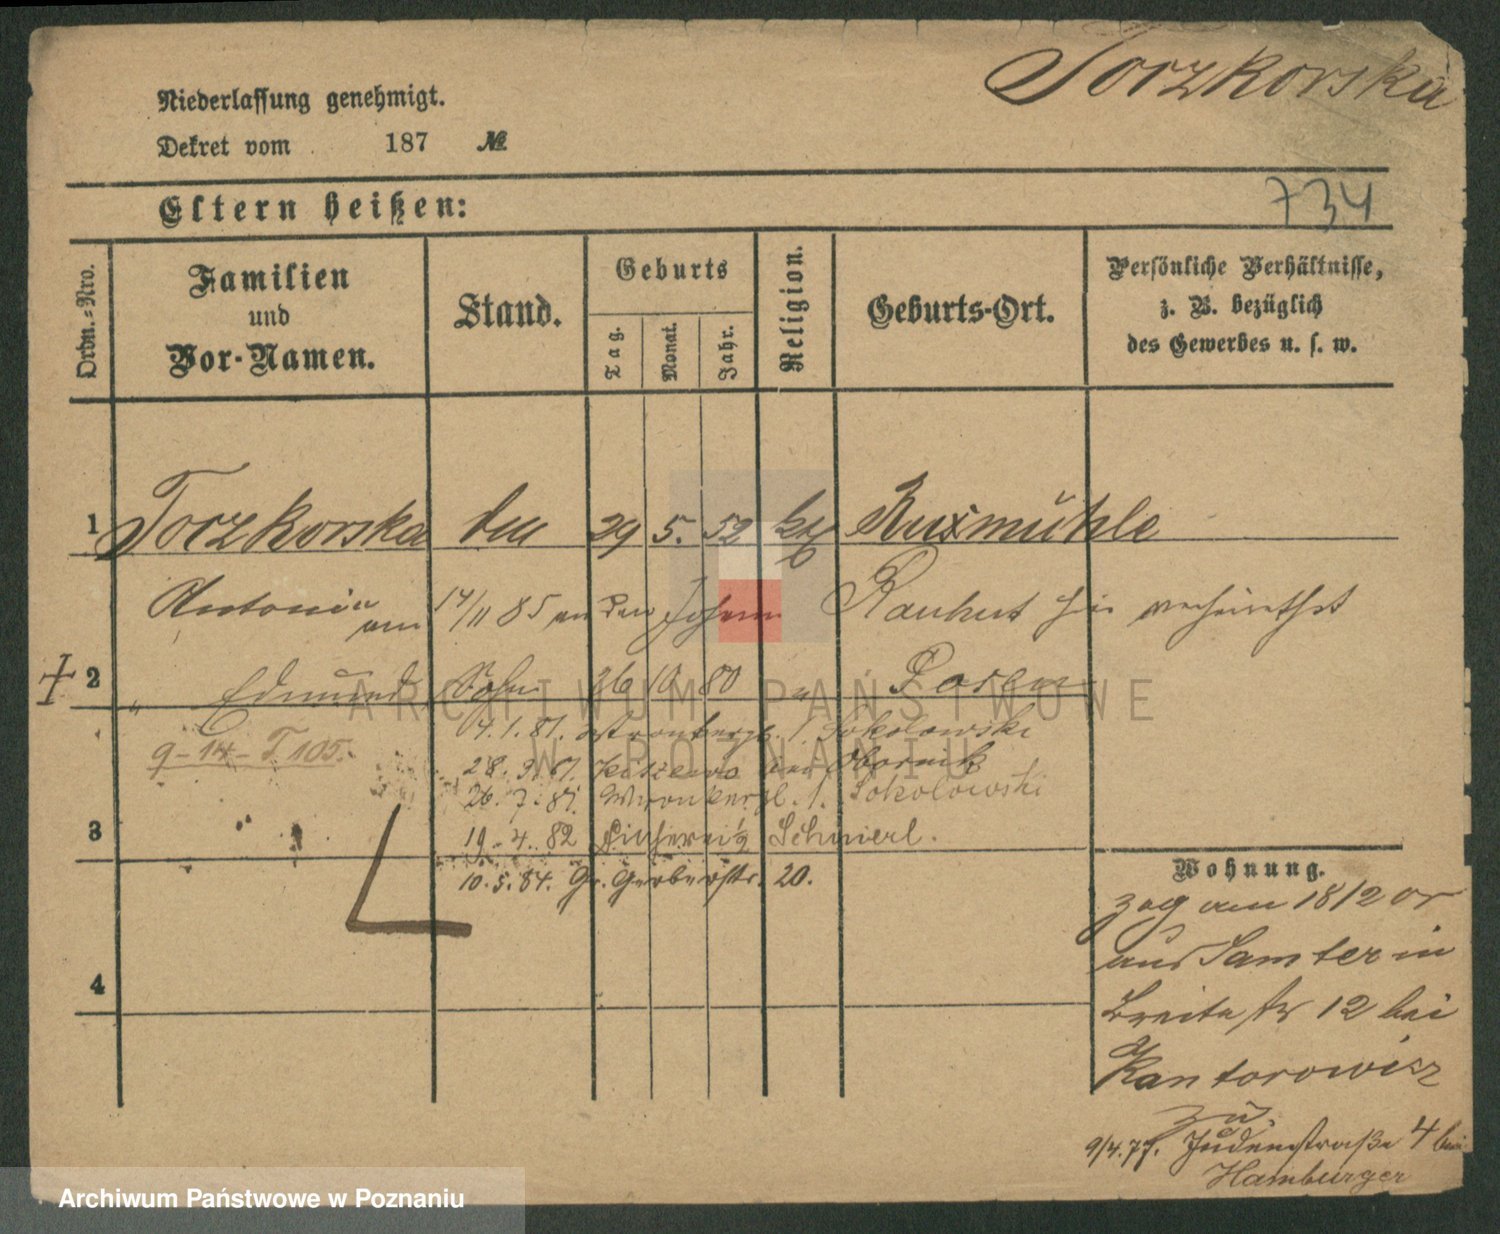 Torzkorska
Niederlassung genehmigt.
Dekret vom 187 №
734
Eltern heißen:
Ordn.-Nro.
Familien
und
Vor-Namen.
Stand.
Geburts
Tag.
Monat.
Jahr.
Religion.
Geburts-Ort.
Persönliche Verhältnisse,
z. B. bezüglich
des Gewerbes u. s. w.
1 Torzkorska 29 5. 52 Ruxmühle
Antonie am 14/11 85 an den Johann Rauhut hie verheirathet
2 " Edmund Sohn 26 10 80 " Posen
4.1.81. Wronkerpl. 1 Sokolowski
9-14-T 105.
28.3.81. bei Obornik
26.7.81. Wronkerpl. 1. Sokolowski
3
19.4.82 Schmerl.
10.5.84. Gr. Gerberstr. 20.
4
Wohnung.
zog am 18/2 cr
aus Samter in
Breite str 12 bei
Kantorowicz
zu.
9/4.77. Judenstraße 4 bei
Hamburger
ARCHIWUM PAŃSTWOWE
W POZNANIU
Archiwum Państwowe w Poznaniu